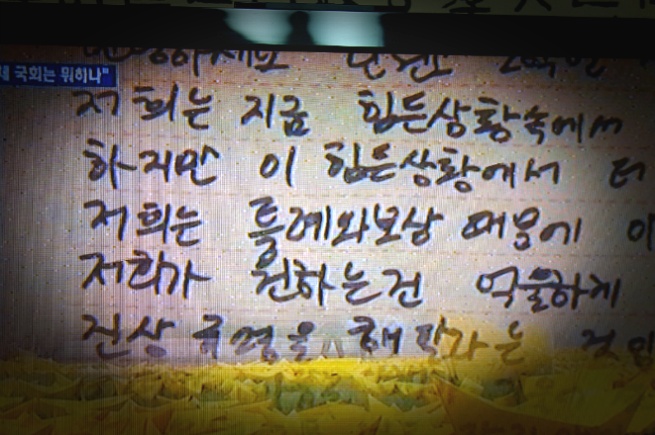 국회는 뭐하나"
저희는 지금 힘든상황속에서
하지만 이 힘든상황에서 더
저희는 특례와보상 때문에 이
저희가 원하는건 억울하게
진상규명을 해달라는 것입